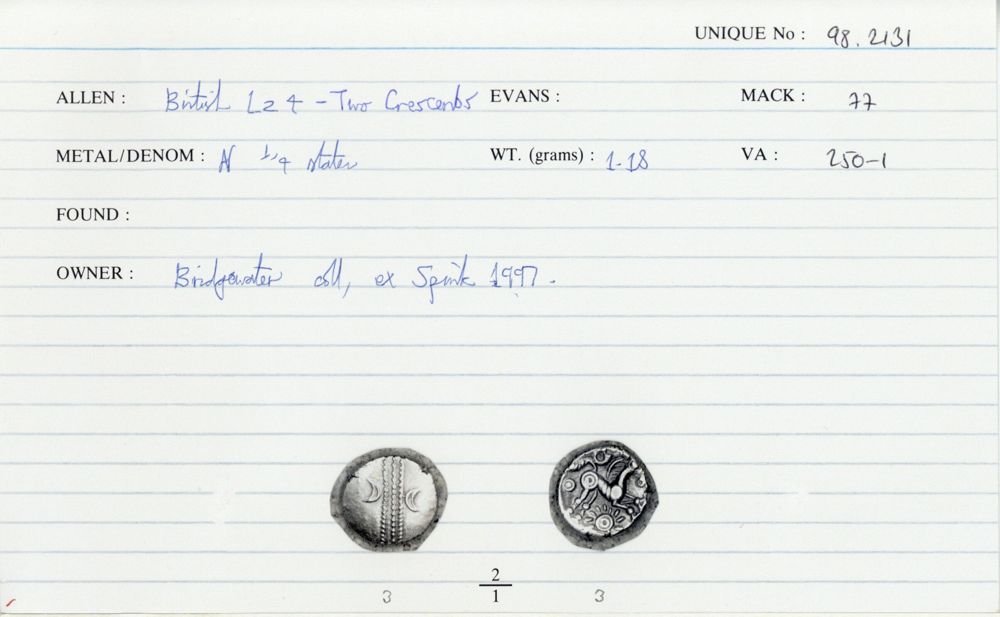 UNIQUE No : 98.2131
ALLEN : British Lz 4 - Two Crescents EVANS : MACK : 77
METAL/DENOM : N 1/4 stater WT. (grams) : 1.18 VA : 250-1
FOUND :
OWNER : Bridgewater coll, ex Spink 1997.
2
3 1 3